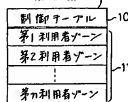 制御テーブル
10
第1利用者ゾーン
第2利用者ゾーン
第n利用者ゾーン